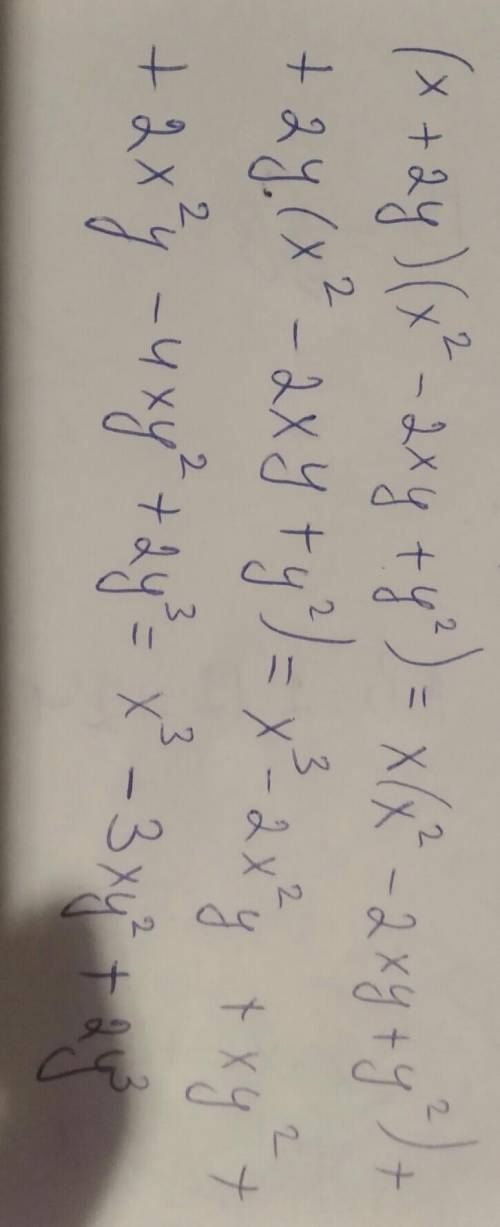 (x + 2y)(x² - 2xy + y²) = x(x² - 2xy + y²) +
+ 2y·(x² - 2xy + y²) = x³ - 2x²y + xy² +
+ 2x²y - 4xy² + 2y³ = x³ - 3xy² + 2y³